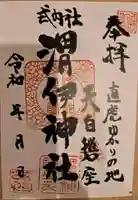 奉拝
直虎ゆかりの地
式内社
渭伊神社
天白磐座
令和 年 月 日